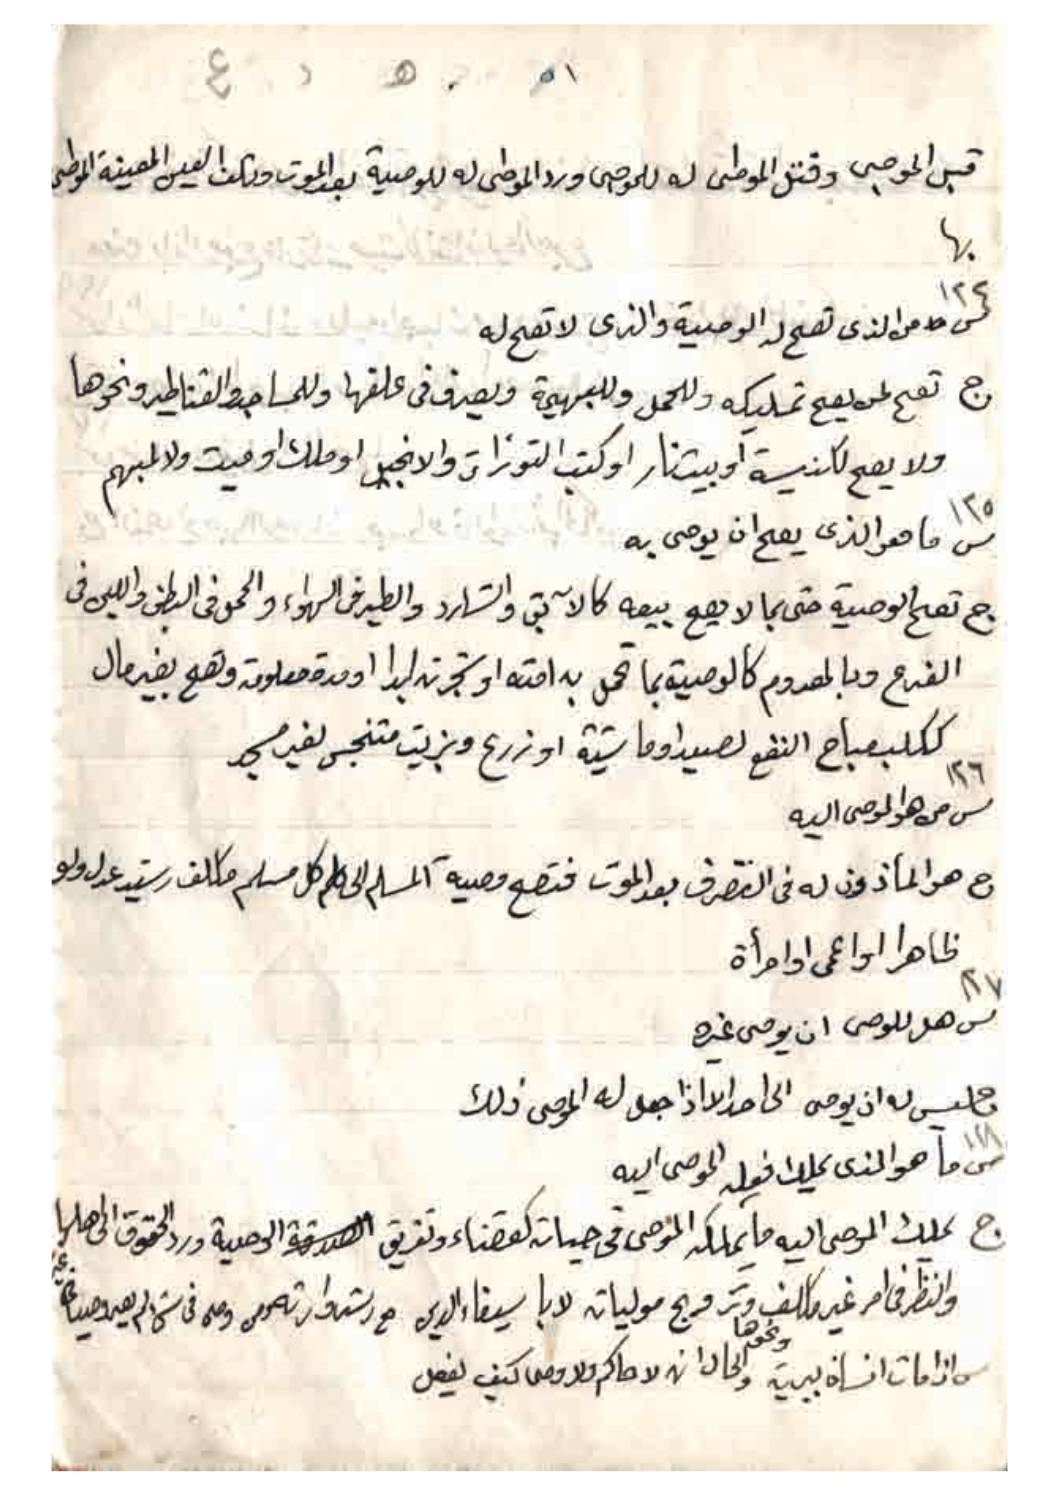 ٥١
قبل الموصي وقتل الموصى له للموصي ورد الموصى له للوصية بعد الموت وتلف العين المعينة الموصى
بها
١٢٤
س من الذي تصح له الوصية والذي لا تصح له
ج تصح لمن يصح تمليكه وللحمل وللبهيمة ويصرف في علفها وللمساجد والقناطير ونحوها
ولا يصح لكنيسة أو بيت نار او كتب التوراة والانجيل او ملك او ميت ولا لمبهم
١٢٥
س ما هو الذي يصح ان يوصى به
ج تصح الوصية حتى بما لا يصح بيعه كالآبق والشارد والطير في الهواء والحمل في البطن واللبن في
الضرع وبالمعدوم كالوصية بما تحمل به امته او شجرته ابدا او مدة معلومة وتصح بغير مال
ككلب مباح النفع لصيد او ماشية او زرع وبزيت متنجس لغير مسجد
١٢٦
س من هو الموصى اليه
ج هو المأذون له في التصرف بعد الموت فتصح وصية المسلم الى كل مسلم مكلف رشيد عدل ولو
ظاهرا او اعمى او امرأة
١٢٧
س هل للوصي ان يوصي غيره
ج ليس له ان يوصي الى احد الا اذا جعل له الموصي ذلك
١٢٨
س ما هو الذي يملك فعله الموصى اليه
ج يملك الموصى اليه ما يملكه الموصي في حياته كقضاء وتفريق الوصية ورد الحقوق الى اهلها
والنظر في امر غير مكلف وتزويج مولياته لا باستيفاء الدين مع رشد وارثه ومن وصي في شئ لم يصر وصيا في غيره
س اذا مات انسان ببرية ونحوها والحال انه لا حاكم ولا وصي كيف يفعل